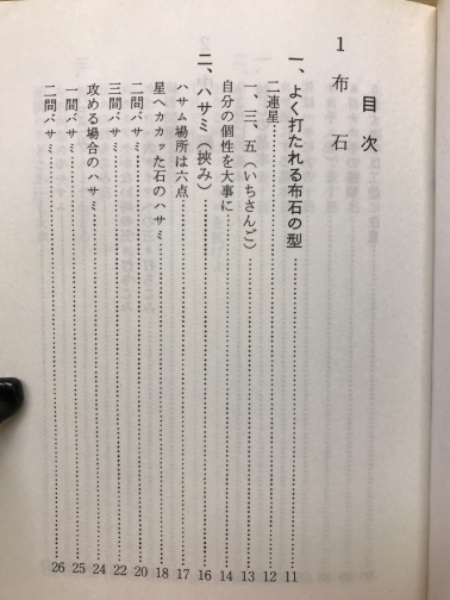 目次
1 布石
一、よく打たれる布石の型……11
二連星……12
一、三、五（いちさんご）……13
自分の個性を大事に……14
二、ハサミ（挾み）……16
ハサム場所は六点……17
星へカカッた石のハサミ……18
二間バサミ……20
三間バサミ……22
攻める場合のハサミ……24
一間バサミ……25
二間バサミ……26